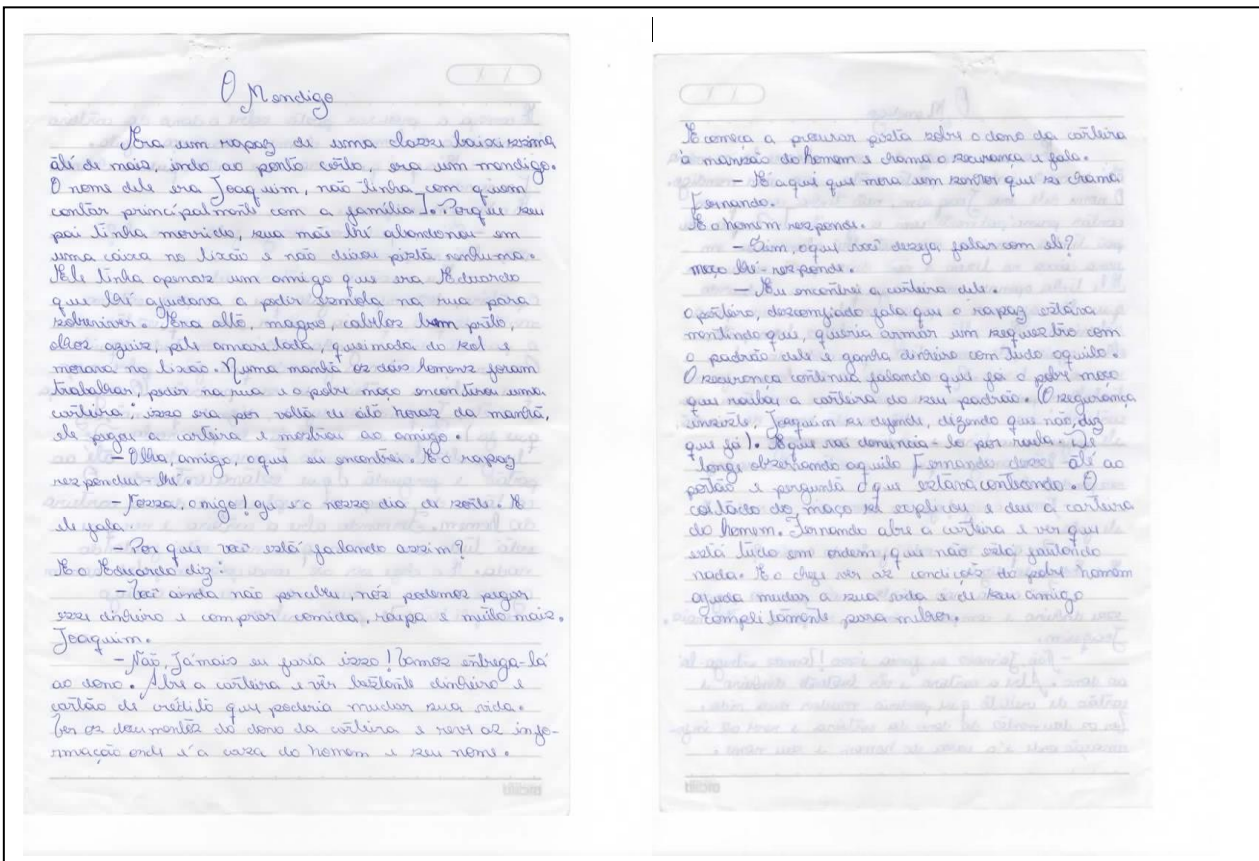 O Mendigo
Era um rapaz de uma classe baixissima
até de mais, indo ao ponto certo, era um mendigo.
O nome dele era Joaquim, não tinha com quem
contar principalmente com a família. Porque seu
pai tinha morrido, sua mãe lhe abandonou em
uma caixa no lixão e não deixou pista nenhuma.
Ele tinha apenas um amigo que era Eduardo
que lhe ajudava a pedir esmola na rua para
sobreviver. Era alto, magro, cabelos bem preto,
olhos azuis, pele amarelada, queimada do sol e
morava no lixão. Numa manhã os dois homens foram
trabalhar, pedir na rua e o pobre moço encontrou uma
carteira; isso era por volta de oito horas da manhã,
ele pegou a carteira e mostrou ao amigo.
– Olha, amigo, oque eu encontrei. E o rapaz
respondeu-lhe.
– Nossa, amigo! que é o nosso dia de sorte. E
ele fala.
– Por que você está falando assim?
E o Eduardo diz:
– Você ainda não percebeu, nós podemos pegar
esse dinheiro e comprar comida, roupa e muito mais.
Joaquim.
– Não, Jámais eu faria isso! Vamos entrega-lá
ao dono. Abre a carteira e vêr bastante dinheiro e
cartão de crédito que poderia mudar sua vida.
Ver os documentos do dono da carteira e rever as info-
rmação onde é a casa do homem e seu nome.
E começa a procurar pista sobre o dono da carteira
à mansão do homem e chama o segurança e fala.
– É aqui que mora um senhor que se chama
Fernando.
E o homem responde.
– Sim, oque você deseja falar com ele?
moço lhe responde.
– Eu encontrei a carteira dele.
o porteiro, desconfiado fala que o rapaz estava
mentindo que, queria armar um sequestro com
o padrão dele e ganha dinheiro com tudo aquilo.
O segurança continua falando que foi o pobre moço
que roubou a carteira do seu padrão. O segurança
insiste, Joaquim se defende, dizendo que não, diz
que foi). E que vai denuncia-lo por roubo. De
longe observando aquilo Fernando desce até ao
portão e pergunta o que estava contecendo. O
coitado do moço se explicou e deu a carteira
do homem. Fernando abre a carteira e ver que
está tudo em ordem, que não está faltando
nada. E o chefe ver as condições do pobre homem
ajuda mudar a sua vida e de seu amigo
completamente para melhor.